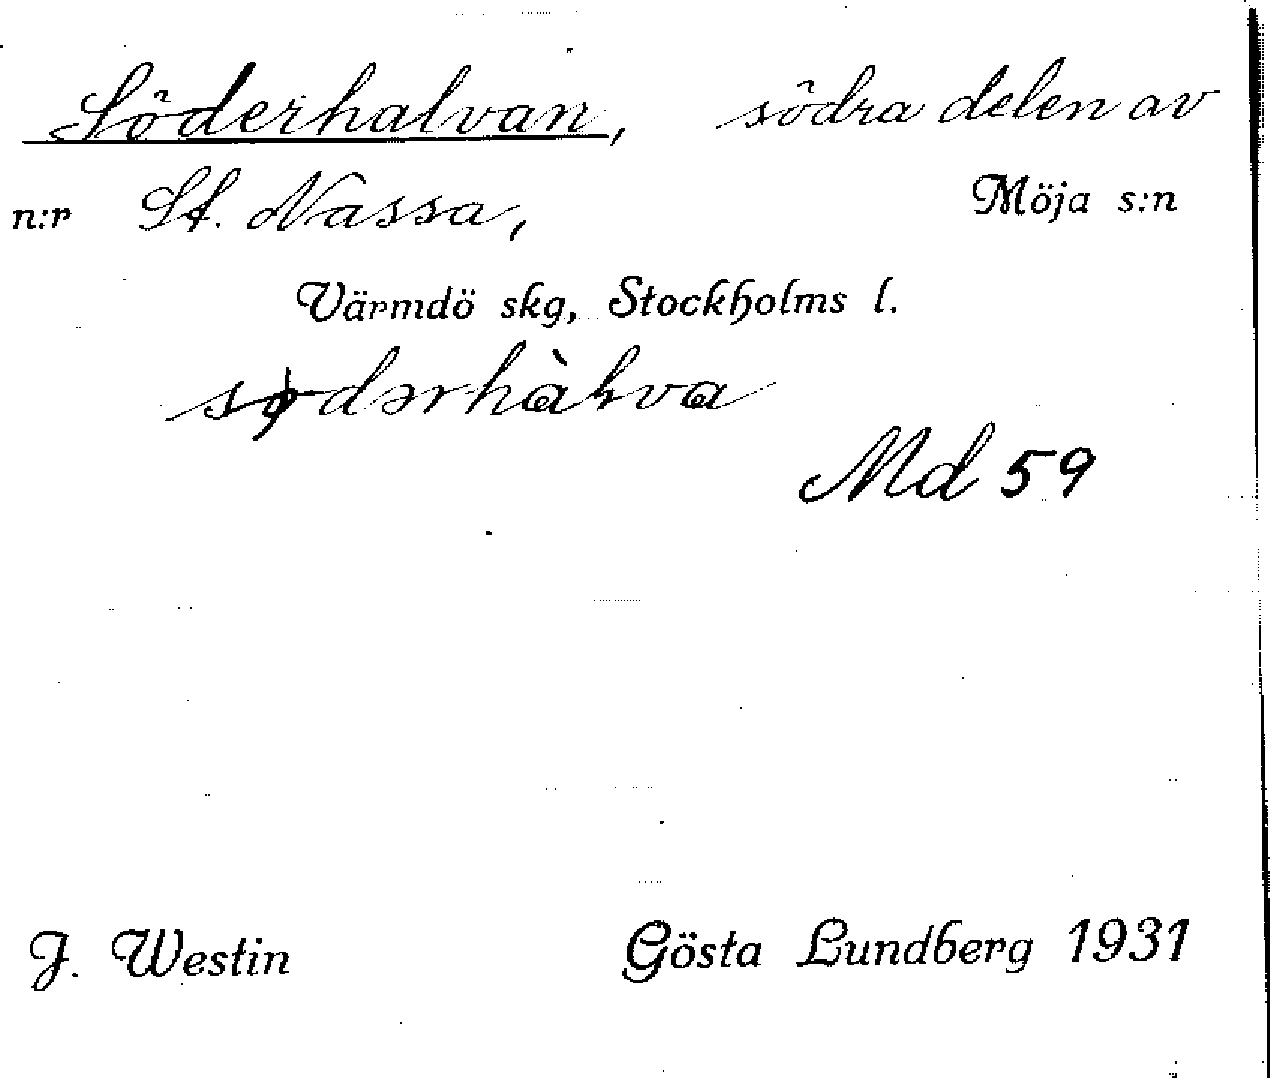 Söderhalvan, södra delen av
n:r St. Nassa, Möja s:n
Värmdö skg, Stockholms l.
Md 59
J. Westin Gösta Lundberg 1931